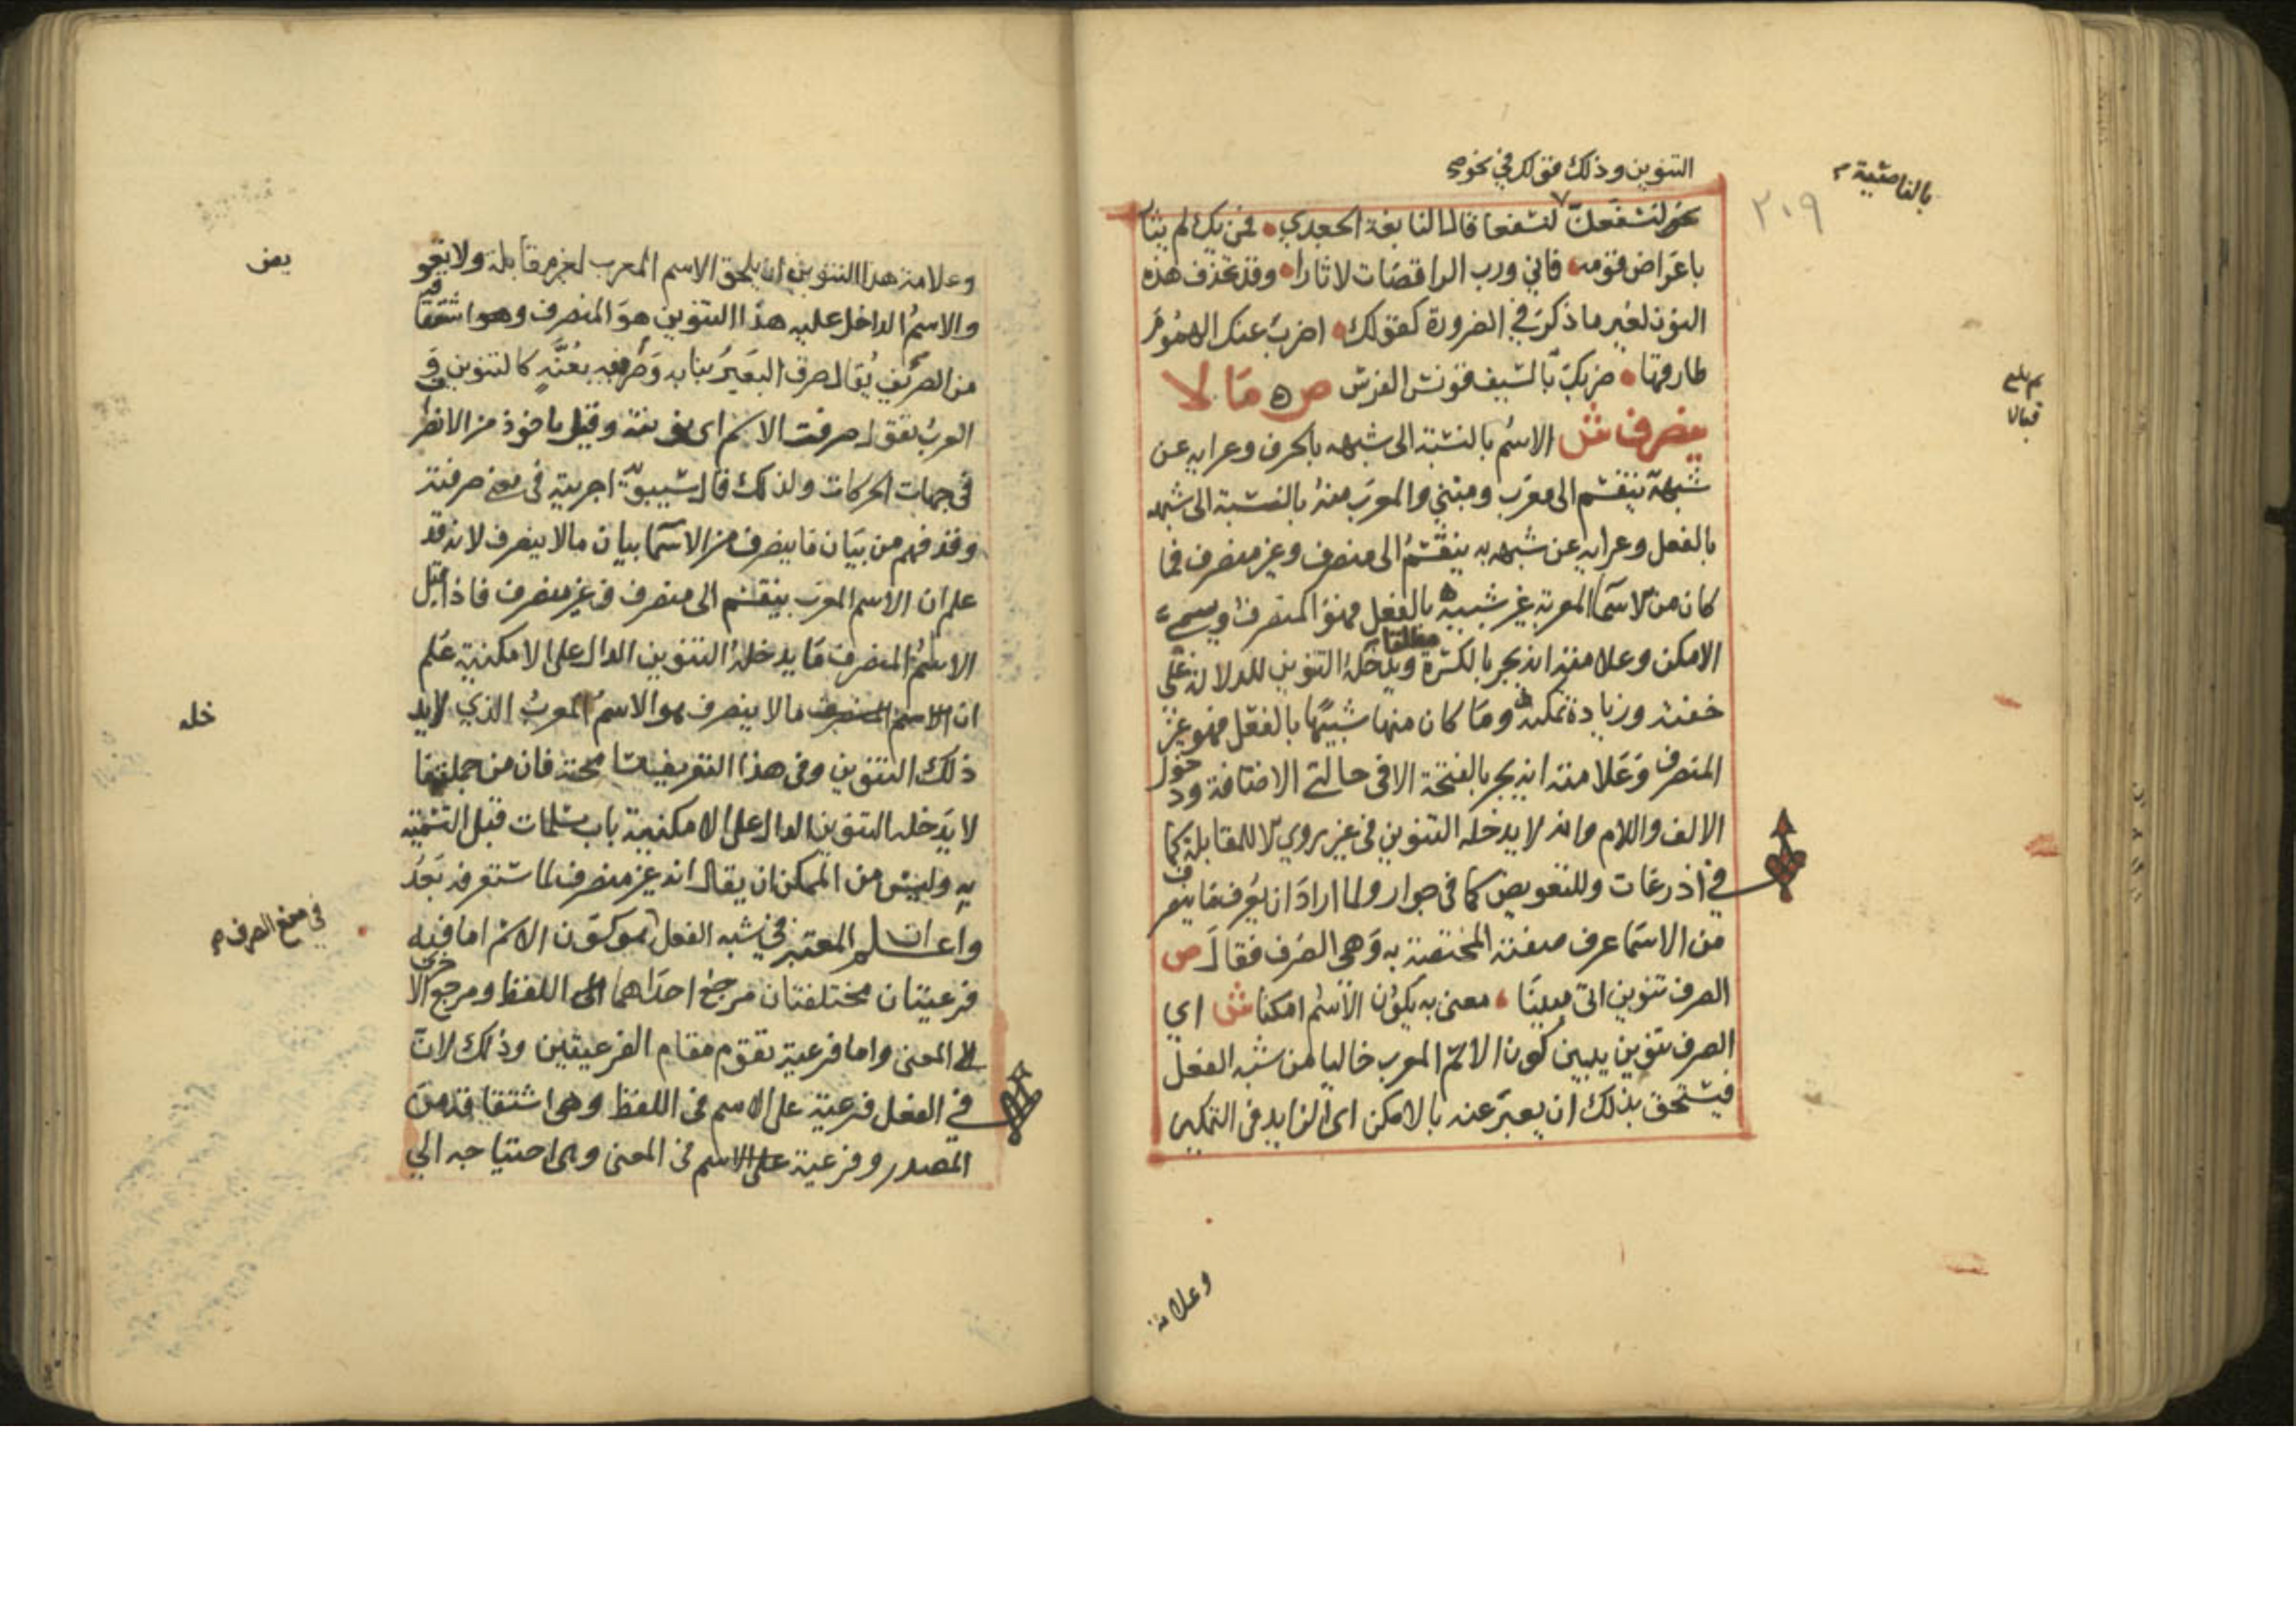 التنوين وذلك قولك في نحو
نحو لنسفعن لنسفعا قال النابغة الجعدي فمن يك لم يثار
باعراض قومه فاني ورب الراقصات لاثارا وقد تحذف هذه
النون لغير ما ذكر في الضرورة كقولك اضرب عنك الهموم
طارقها ضربك بالسيف قونس الفرس ص ما لا
ينصرف ش الاسم بالنسبة الى شبهه بالحرف وعرايه عن
شبهه ينقسم الى معرب ومبني والمعرب منه بالنسبة الى شبهه
بالفعل وعرايه عن شبهه به ينقسم الى منصرف وغير منصرف فما
كان من الاسما المعربة غير شبيه بالفعل فهو المنصرف ويسمى
الامكن وعلامته انه يجر بالكسرة مطلقا ويدخله التنوين للدلالة على
خفته وزيادة تمكنه وما كان منها شبيها بالفعل فهو غير
المنصرف وعلامته انه يجر بالفتحة الا في حالتي الاضافة ودخول
الالف واللام وانه لا يدخله التنوين في غير روي الا للمقابلة كما
في اذرعات وللتعويض كما في جوار ولما اراد ان يعرف ما ينصرف
من الاسما عرف صفته المختصة به وهي الصرف فقال ص
الصرف تنوين اتى مبينا معنى به يكون الاسم امكنا ش اي
الصرف تنوين يبين كون الاسم المعرب خاليا من شبه الفعل
فيستحق بذلك ان يعبر عنه بالامكن اي الزايد في التمكين
وعلامة
بالناصية
٢٠٩
وعلامة هذا التنوين ان يلحق الاسم المعرب لغير مقابلة ولا تعو
يض
والاسم الداخل عليه هذا التنوين هو المنصرف وهو اشتقاقه
من الصريف يقال صرف البعير بنابه وصرفه بغنة كالتنوين و
العرب تقول صرفت الاسم اي نونته وقيل ماخوذ من الانصراف
في جهات الحركات ولذلك قال سيبويه اجريته في معنى صرفته
وقد فهم من بيان ما ينصرف من الاسما بيان ما لا ينصرف لانه قد
علم ان الاسم المعرب ينقسم الى منصرف وغير منصرف فاذا قيل
الاسم المنصرف ما يدخله التنوين الدال على الامكنية علم
ان الاسم المنصرف ما لا ينصرف هو الاسم المعرب الذي لا يد
خله
ذلك التنوين وفي هذا التعريف مسامحة فان من جملة ما
لا يدخله التنوين الدال على الامكنية باب مسلمات قبل التسمية
به وليس من الممكن ان يقال انه غير منصرف لما ستعرفه بعد
واعلم ان المعتبر في شبه الفعل هو كون الاسم اما فيه
في منع الصرف
فرعيتان مختلفتان مرجع احداهما الى اللفظ ومرجع الاخرى
الى المعنى واما فرعية تقوم مقام الفرعيتين وذلك لان
في الفعل فرعية على الاسم في اللفظ وهي اشتقاقه من
المصدر وفرعية على الاسم في المعنى وهي احتياجه الى